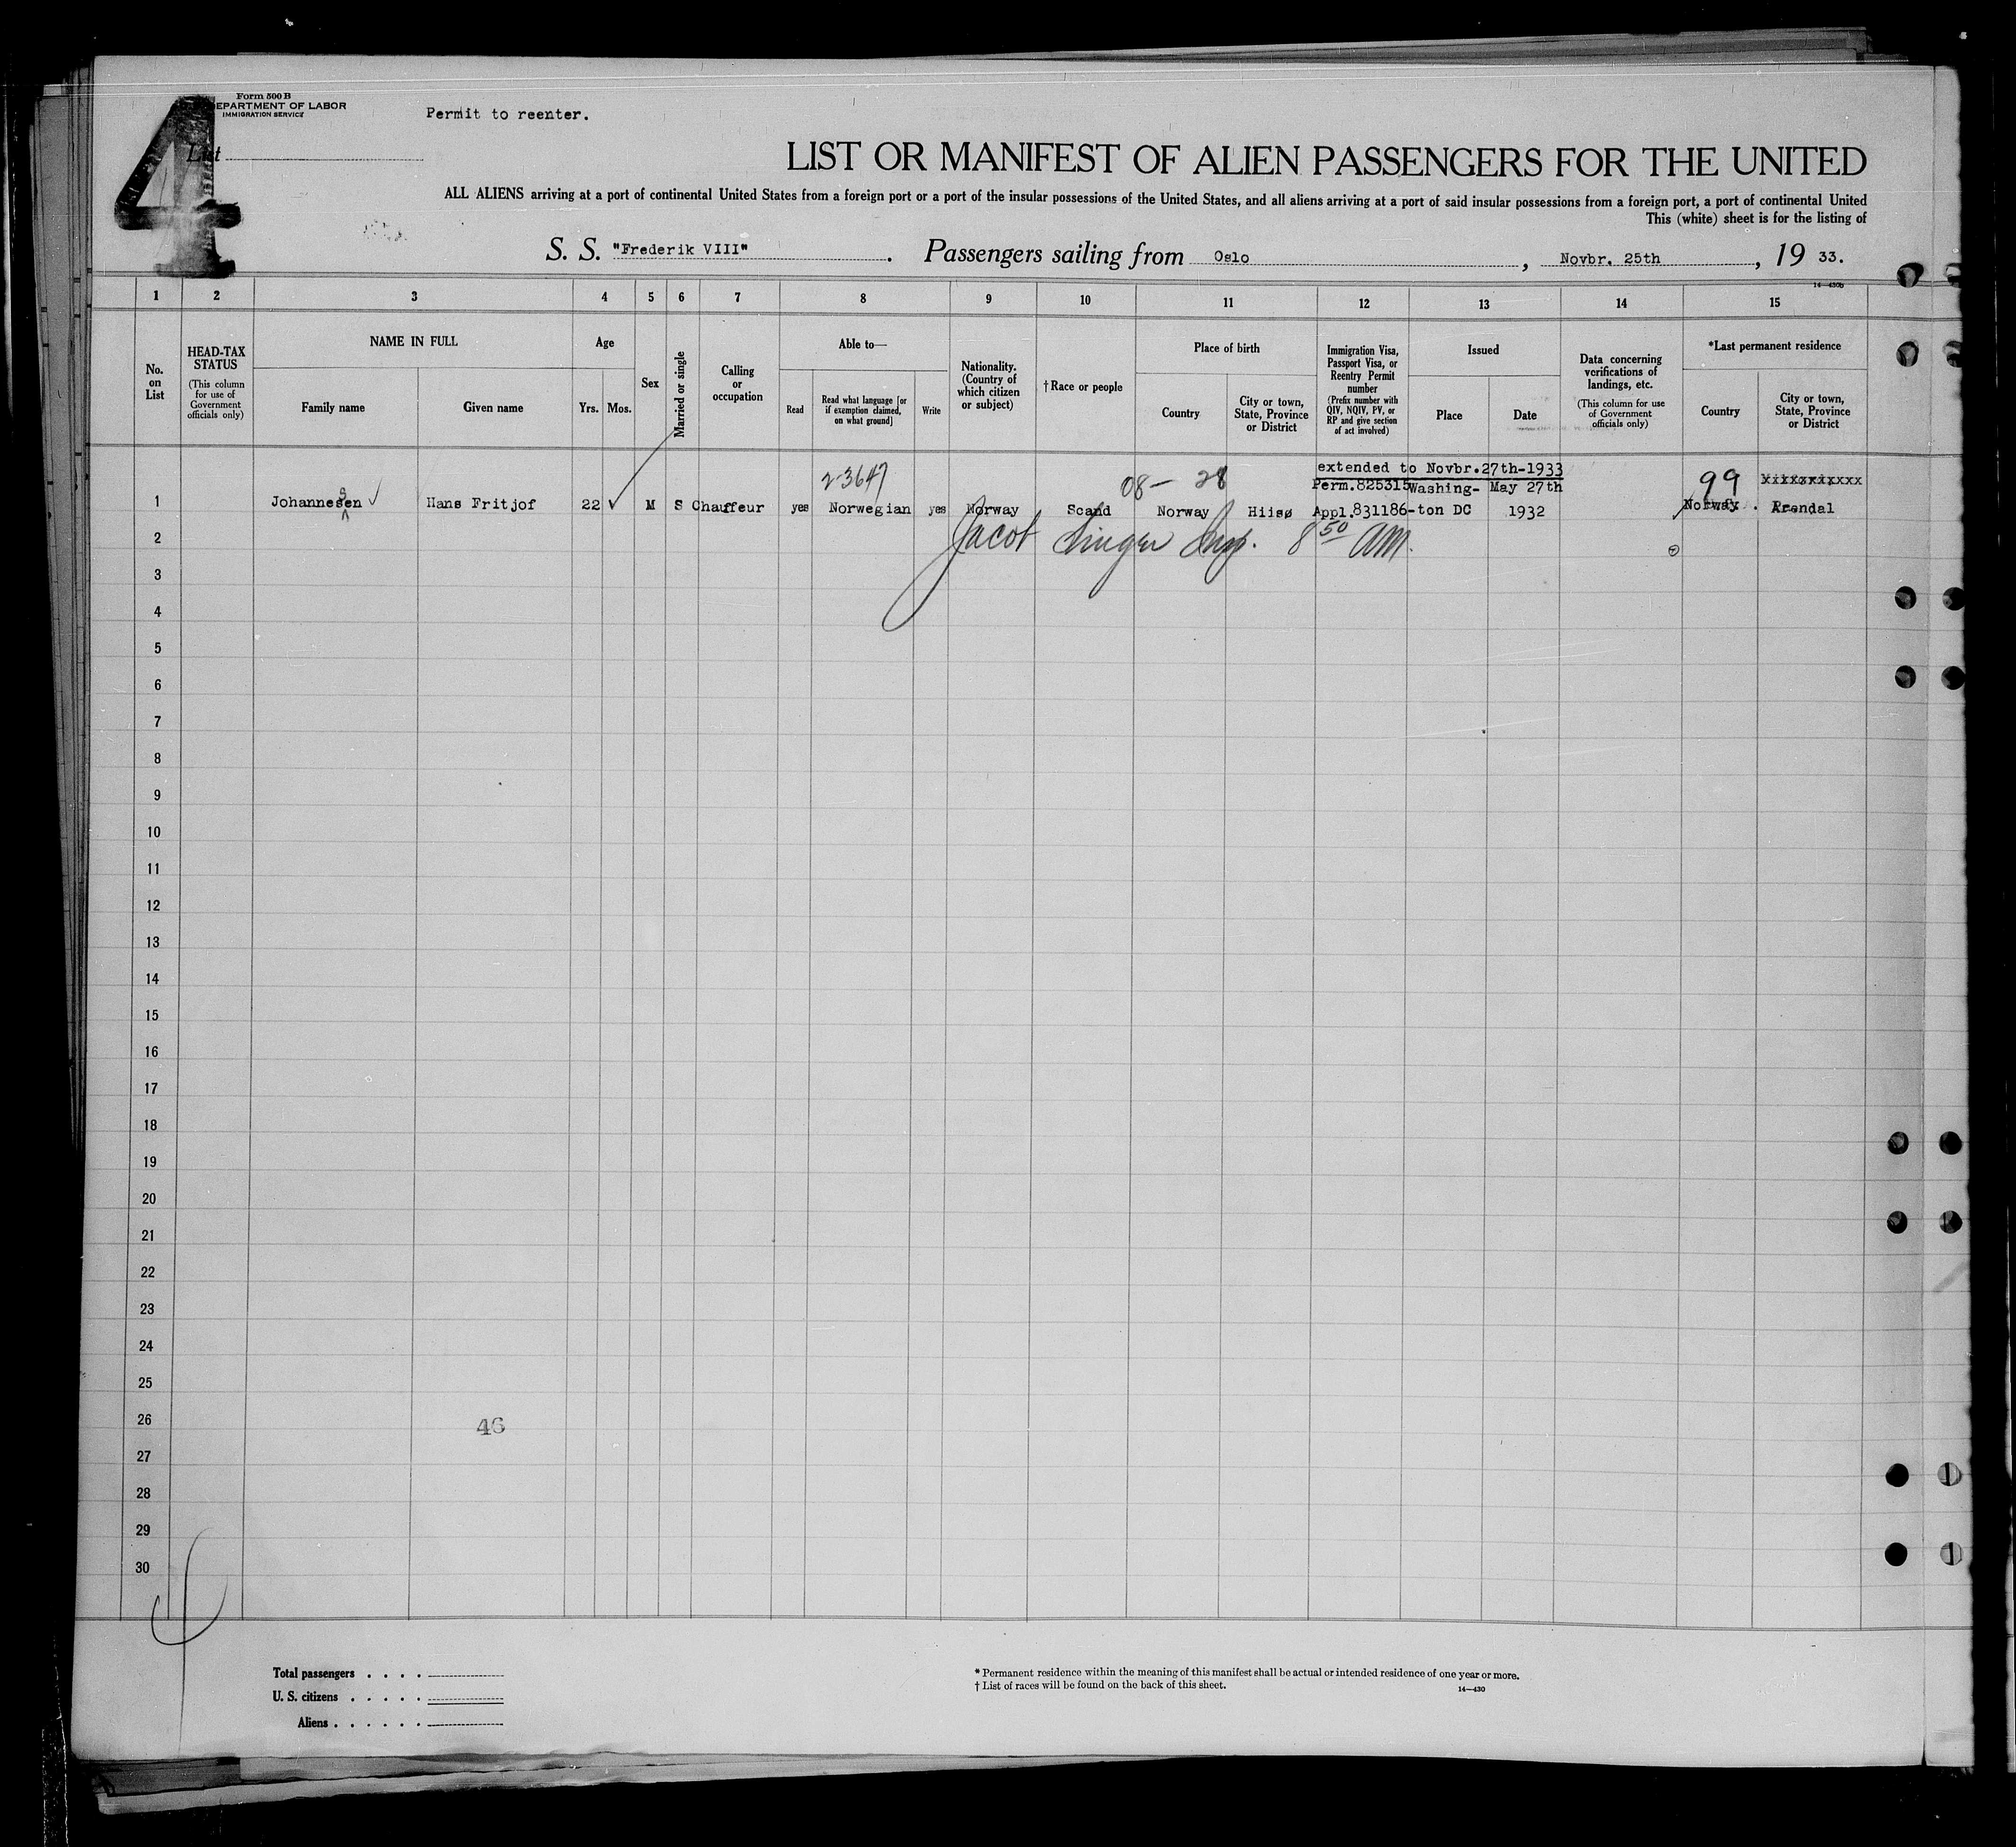 Form 500 B
DEPARTMENT OF LABOR
IMMIGRATION SERVICE
4
List
Permit to reenter.
LIST OR MANIFEST OF ALIEN PASSENGERS FOR THE UNITED
ALL ALIENS arriving at a port of continental United States from a foreign port or a port of the insular possessions of the United States, and all aliens arriving at a port of said insular possessions from a foreign port, a port of continental United
This (white) sheet is for the listing of
S. S. "Frederik VIII". Passengers sailing from Oslo, Novbr. 25th, 19 33.
14—430b
1 2 3 4 5 6 7 8 9 10 11 12 13 14 15
No. on List
HEAD-TAX STATUS
(This column for use of Government officials only)
NAME IN FULL
Family name
Given name
Age
Yrs. Mos.
Sex
Married or single
Calling or occupation
Able to—
Read
Read what language [or if exemption claimed, on what ground]
Write
Nationality. (Country of which citizen or subject)
†Race or people
Place of birth
Country
City or town, State, Province or District
Immigration Visa, Passport Visa, or Reentry Permit number
(Prefix number with QIV, NQIV, PV, or RP and give section of act involved)
Issued
Place
Date
Data concerning verifications of landings, etc.
(This column for use of Government officials only)
*Last permanent residence
Country
City or town, State, Province or District
2-3647 08— 28 extended to Novbr.27th-1933 99
Perm.825315 Washing- May 27th
1 Johannesen s Hans Fritjof 22 M S Chauffeur yes Norwegian yes Norway Scand Norway Hiisø Appl.831186-ton DC 1932 Norway. Arendal
2 Jacob Singer Insp. 8 50 AM.
3
4
5
6
7
8
9
10
11
12
13
14
15
16
17
18
19
20
21
22
23
24
25
26 46
27
28
29
30
Total passengers . . . .
U. S. citizens . . . . .
Aliens . . . . . .
* Permanent residence within the meaning of this manifest shall be actual or intended residence of one year or more.
† List of races will be found on the back of this sheet.
14—430